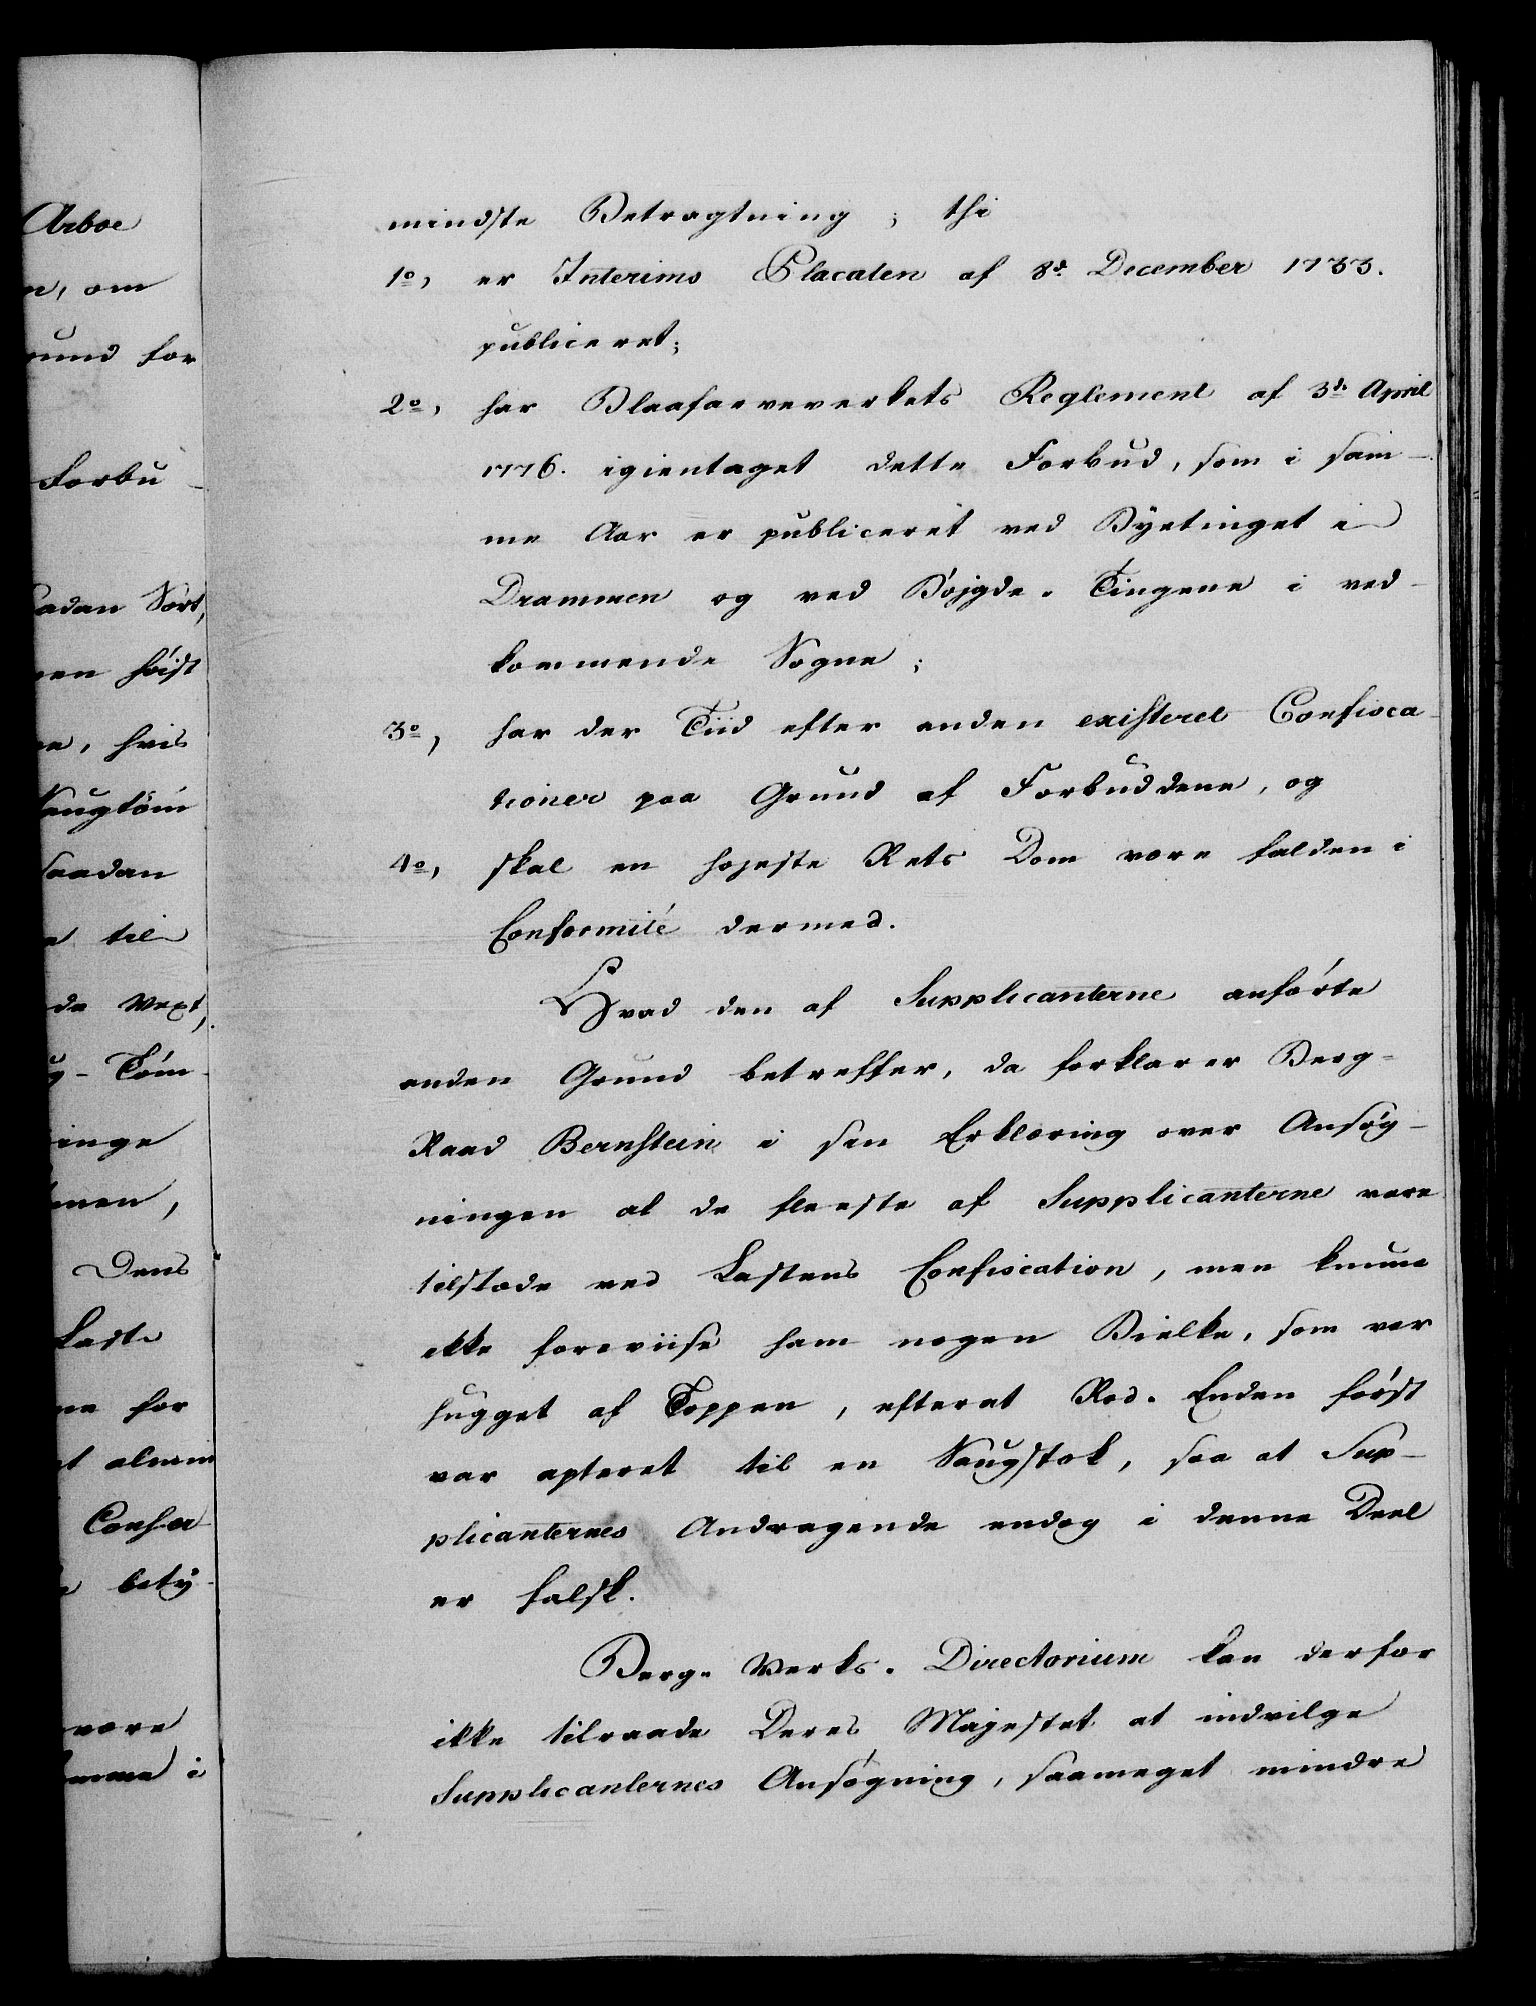 Arboe
n, om
rund for
Forbu-
saadan Sort,
men høist
ne, hvis
Saugtöm
saadan
e til
de Vext,
ug-Töm-
inge
men,
Dens
Last
ne for
et almin
Confor
e bety-
være
komme i
mindste Betragtning; thi
1o, er Interims Placaten af 8d. December 1733.
publiceret;
2o, har Blaafarveverkets Reglement af 3d. April
1776. igientaget dette Forbud, som i sam-
me Aar er publiceret ved Byetinget i
Drammen og ved Bøjgde-Tingene i ved-
kommende Sogne;
3o, har der Tiid efter anden existeret Confisca-
tioner paa Grund af Forbuddene, og
4o, skal en hojeste Rets Dom være falden i
Conformité dermed.
Hvad den af Supplicanterne anførte
anden Grund betreffer, da forklarer Berg-
Raad Bernstein i sin Erklæring over Ansøg-
ningen at de fleeste af Supplicanterne vare
tilstæde ved Lastens Confiscation, men kunne
ikke foreviise ham nogen Bielke, som var
hugget af Toppen, efterat Rod-Enden først
var apteret til en Saugstok, saa at Sup-
plicanternes Andragende endog i denne Deel
er falsk.
Berg-Verks-Directorium kan derfor
ikke tilraade Deres Majestet at indvilge
Supplicanternes Ansøgning, saameget mindre